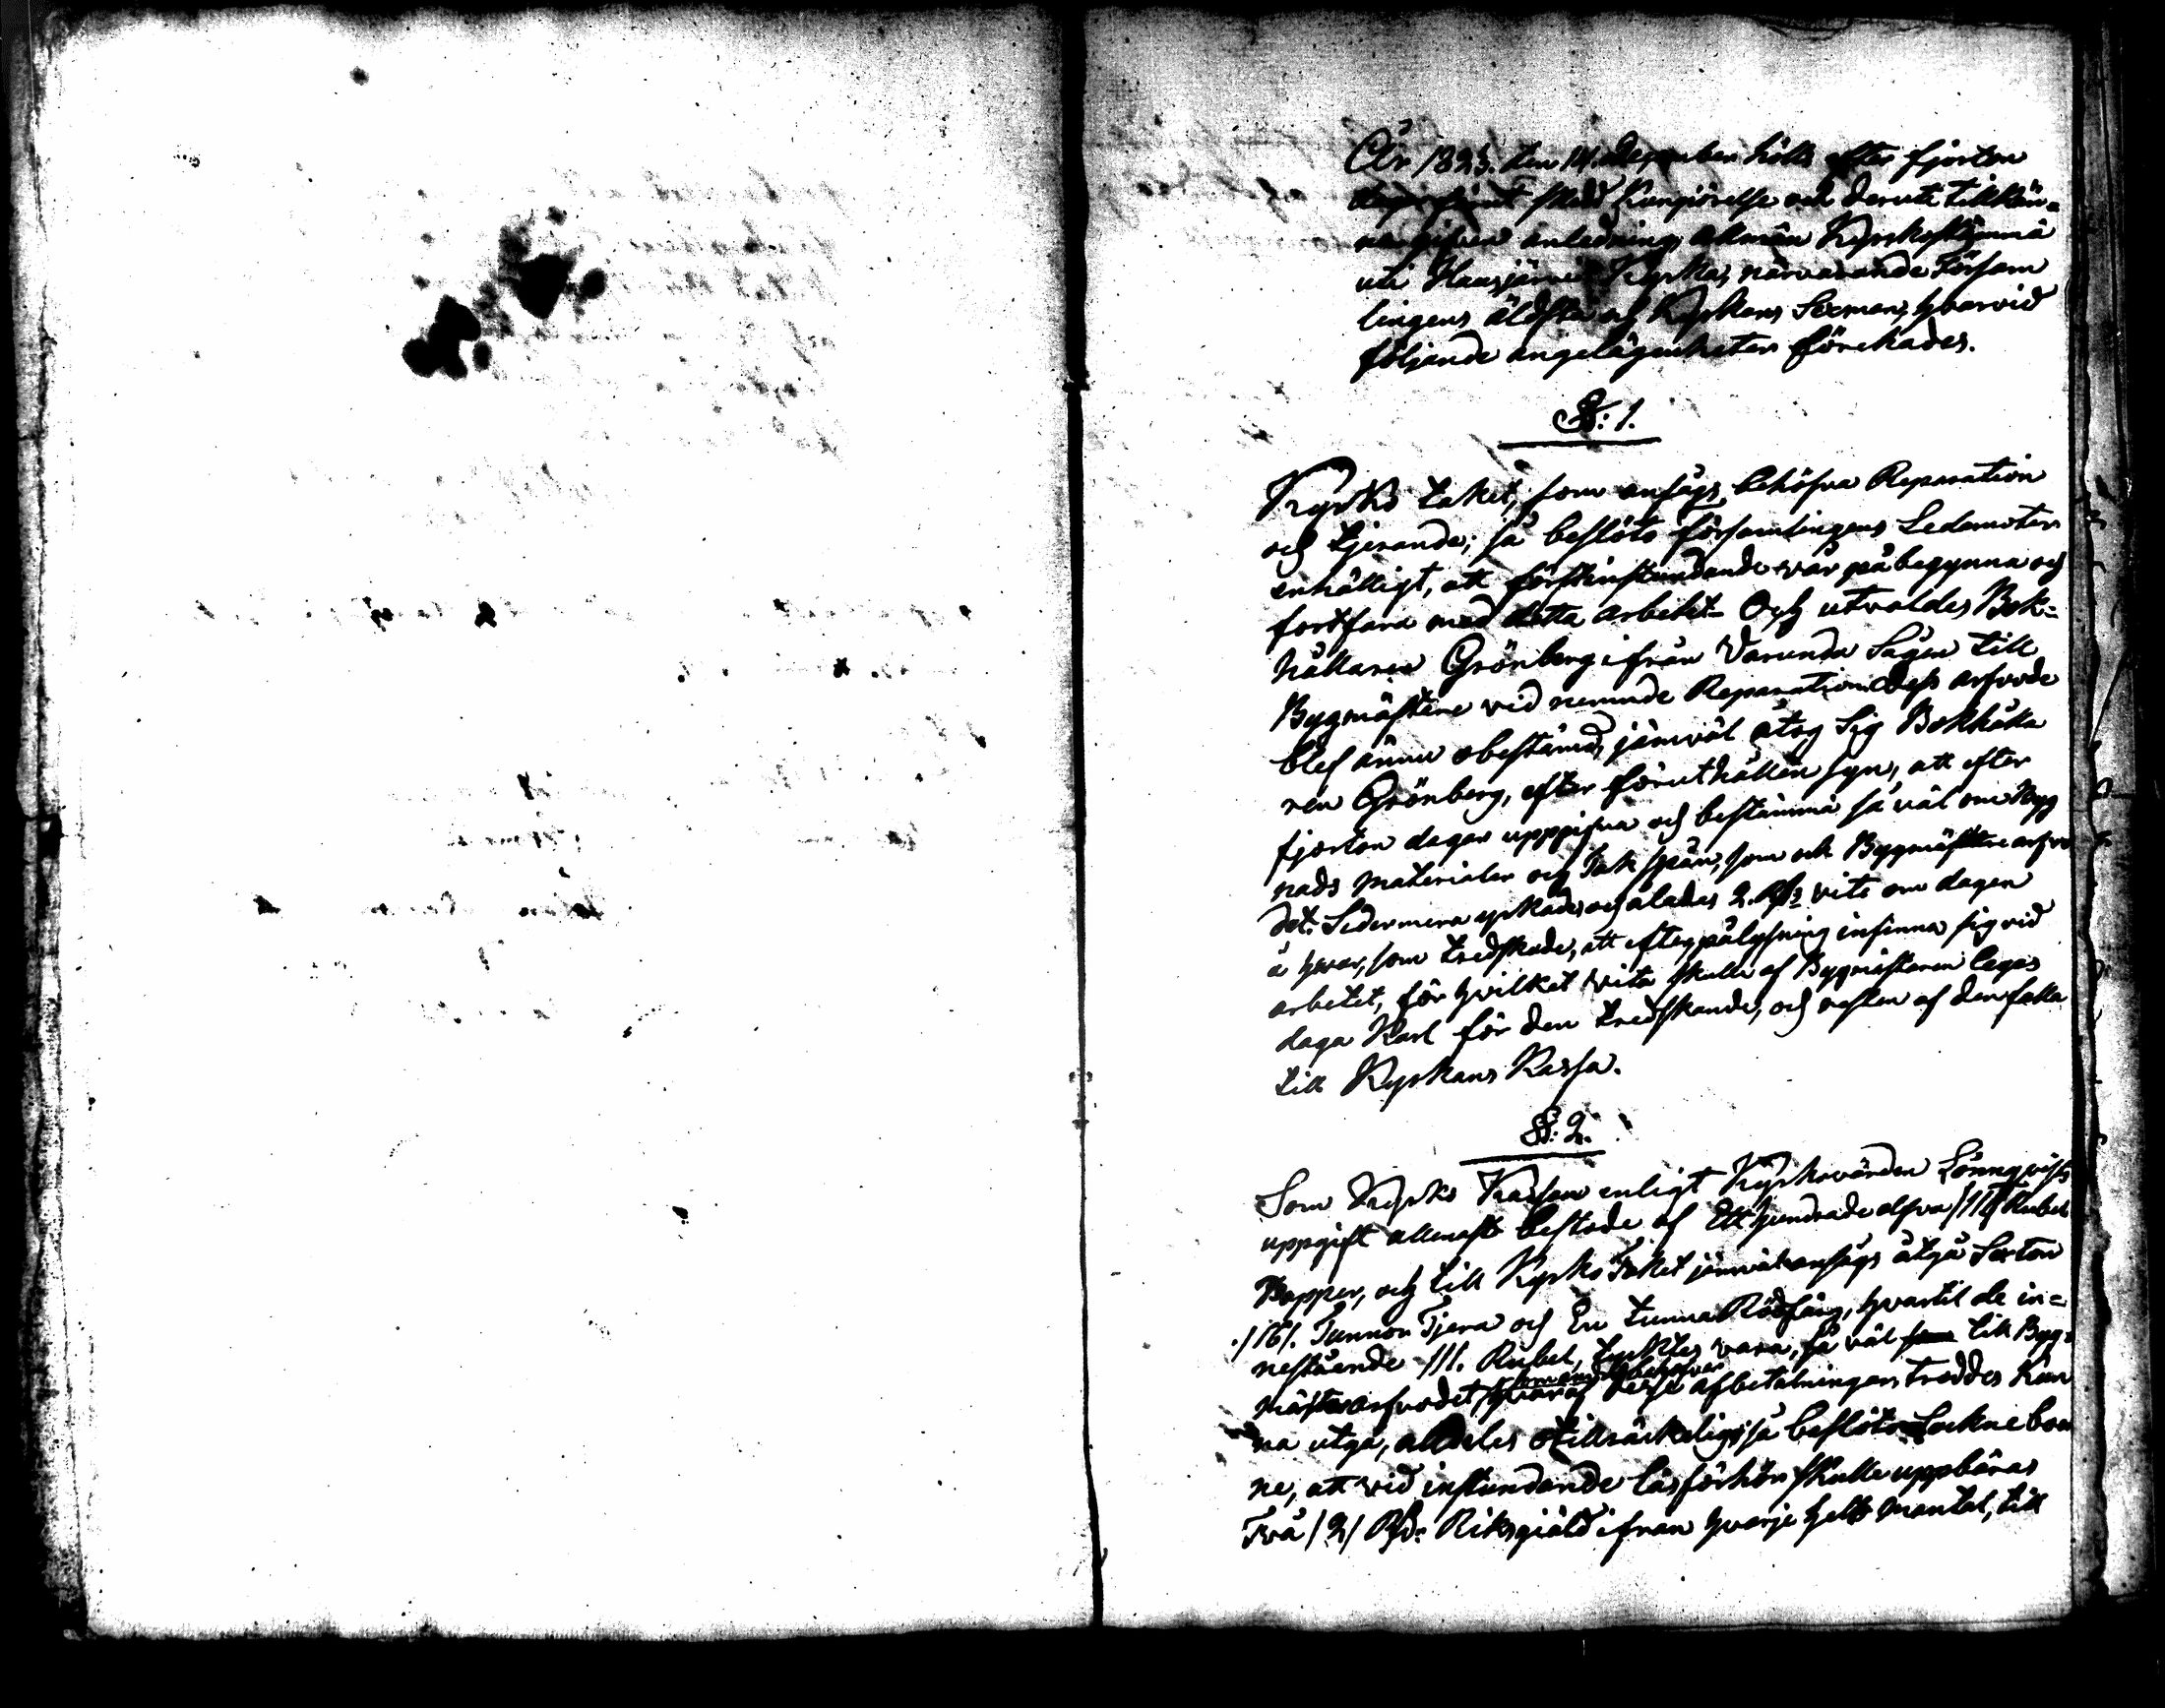 År 1823. den 14. december hölls efter fjorton
dagar förut skedd Kungiörelse och derute tillkän-
na gifven anledning, allmän Kyrkostämma
uti Hausjärvi Kyrka, närvarande Försam
lingens äldsta och Kyrkans Sexman, hvarvid
följande angelägenheter förehades.
§: 1.
Kyrko taket, som ansågs behöfva Reparation
och tjerande; så beslöto församlingens Ledamoter
enhälligt, att förstinstundande vår påbegynna och
fortfara med detta arbetet - Och utvaldes Bok-
hållaren Grönberg ifrån Varunda Sågen till
Bygmästare vid nemnde Reparation Dess arfvode
blef ännu obestämd, jämväl åtog Sig Bokhålla
ren Grönberg, efter förut hållen syn, att efter
fjorton dagar uppgifva och bestämma så väl om Byg
nads materialer och Tak spån, som ock Bygmästare arfvo
det. Sedermera yrkades och ålades 2. Rd: vite om dagen
å hvar, som tredskade, att efter pålysning infinna sig vid
arbetet, för hvilket vite skulle af Bygmästaren legas
daga Karl för den tredskande, och resten af den falla
till Kyrkans Kassa.
§: 2.
Som Kyrko Kassan enligt Kyrkovärden Lönnqvists
uppgift allenast bestode af Ett hundrade elfva /111/ Rubel
Bopper, och till Kyrko Taket jämväl ansågs åtgå Sexton
/16/. Tunnor Tjera och En tunna Rödfärg, hvartil de in-
nestående 111. Rubel, tycktes vara, så väl som till Byg-
mästar arfvodet, som andre behofver
hvaraf desse afbetalningar troddes Kun
na utgå, alldeles otillräckeligt; så beslöto Sockne boer
ne, att vid instundande läsförhör skulle uppbäras
Två /2/ Rd: Riksgiäld ifrån hvarje helt mantal, till